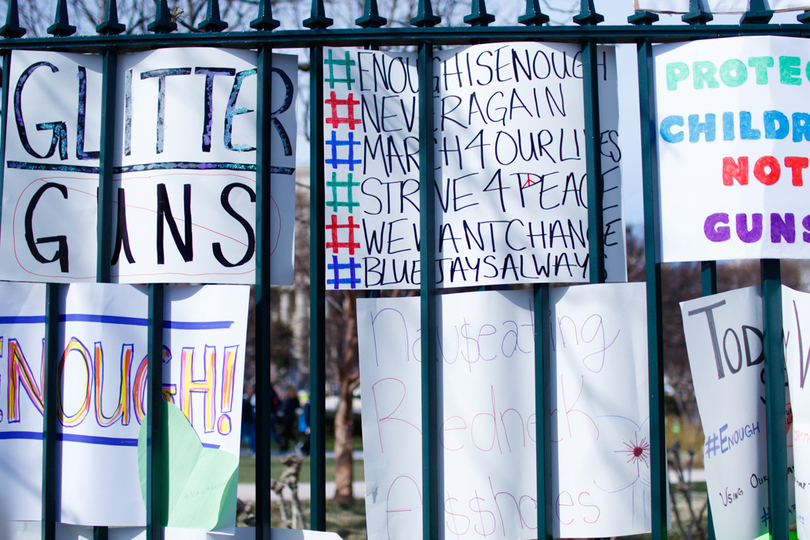 GLITTER
GUNS
#ENOUGHISENOUGH
#NEVERAGAIN
#MARCH4OURLIVES
#STRIVE4PEACE
#WEWANTCHANGE
#BLUEJAYSALWAYS
PROTEC
CHILDR
NOT
GUNS
ENOUGH!!
Nau$eating
Redneck
A$$holes
TODAY
#ENOUGH
USING OUR